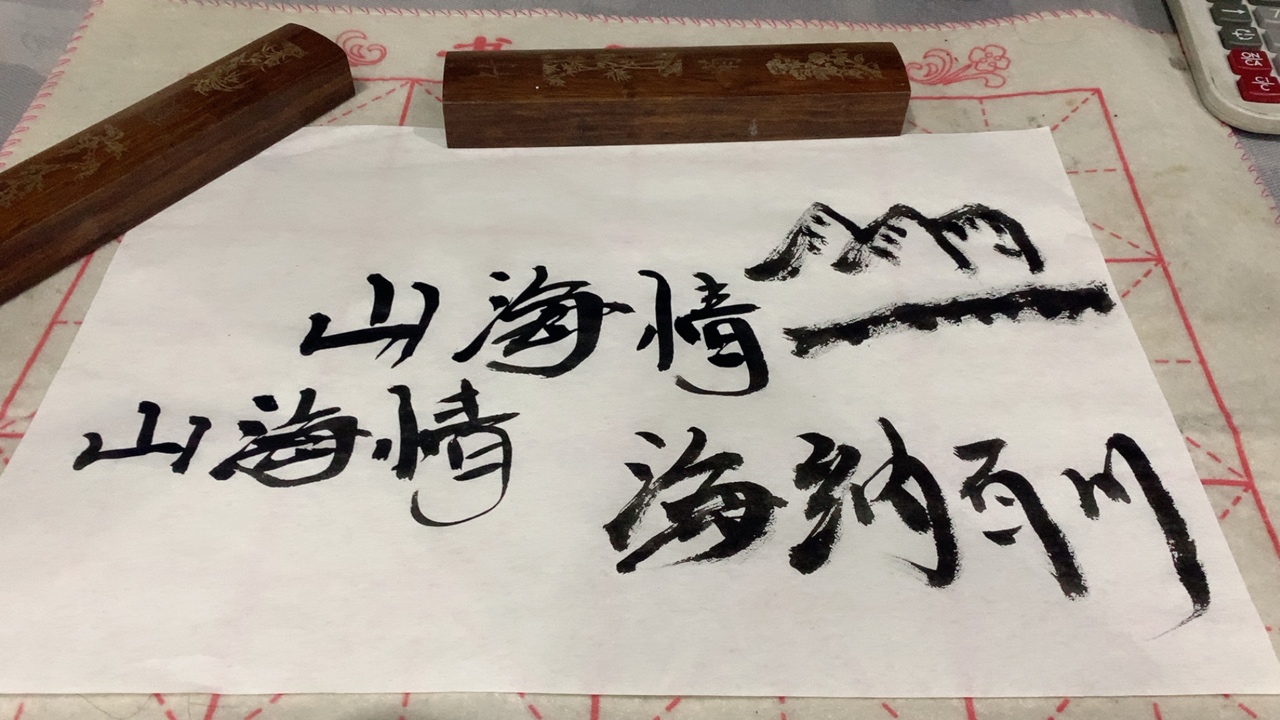 山海情
山海情
海纳百川